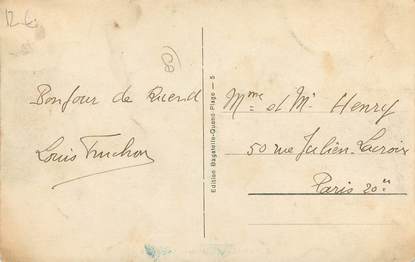 Bonjour de Quend
Louis Truchon
Edition Bagatelle-Quend-Plage — 5
Mme et Mr Henry
50 rue Julien-Lacroix
Paris 20e